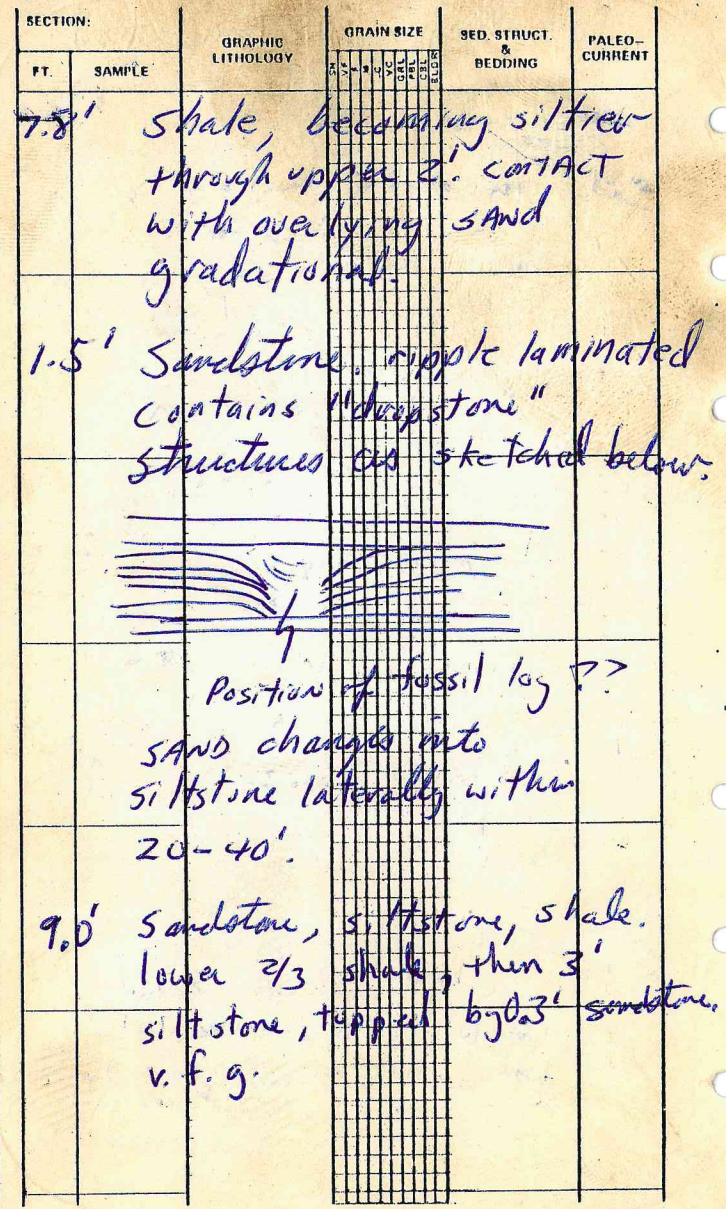 SECTION:
FT. SAMPLE
GRAPHIC
LITHOLOGY
GRAIN SIZE
SH VF F M C VC GRL PBL CBL BLDR
SED. STRUCT.
&
BEDDING
PALEO-
CURRENT
7.8' Shale, becoming siltier
through upper 2'. CONTACT
with overlying SAND
gradational.
1.5' Sandstone, ripple laminated
contains "dropstone"
structures as sketched below.
Position of fossil log ??
SAND changes into
siltstone laterally within
20-40'.
9.0' Sandstone, siltstone, shale.
lower 2/3 shale, then 3'
siltstone, topped by 0.3' sandstone,
v. f. g.